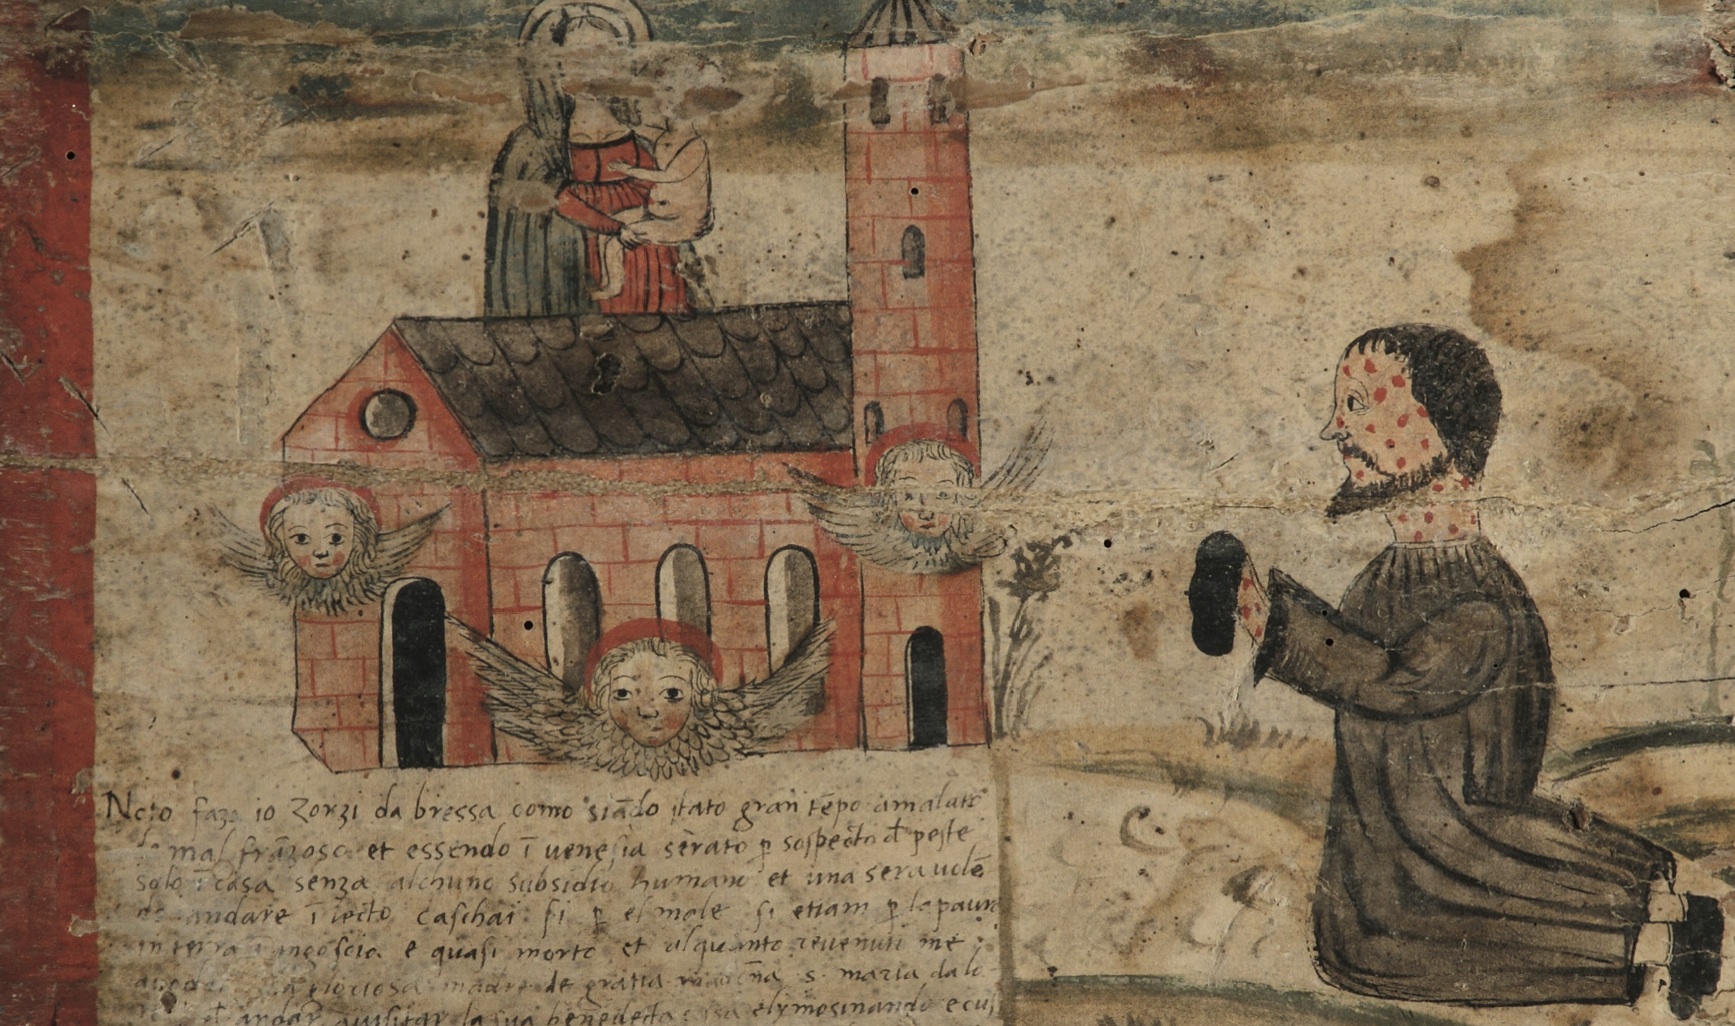 Noto fazo io Zorzi da bressa como siādo stato gran tēpo amalato
mal frāzoso et essendo ī uenesia serato p sospecto d peste
solo ī casa senza alchuno subsidio humano et una sera uolē
andare ī lecto caschai si p el male si etiam p la paura
in terra āngoscia e quasi morto et alquanto reuenuti me
gloriosa madre de gratia s. maria da lo
andar a uisitar la sua benedecta casa elymosinando e cusi